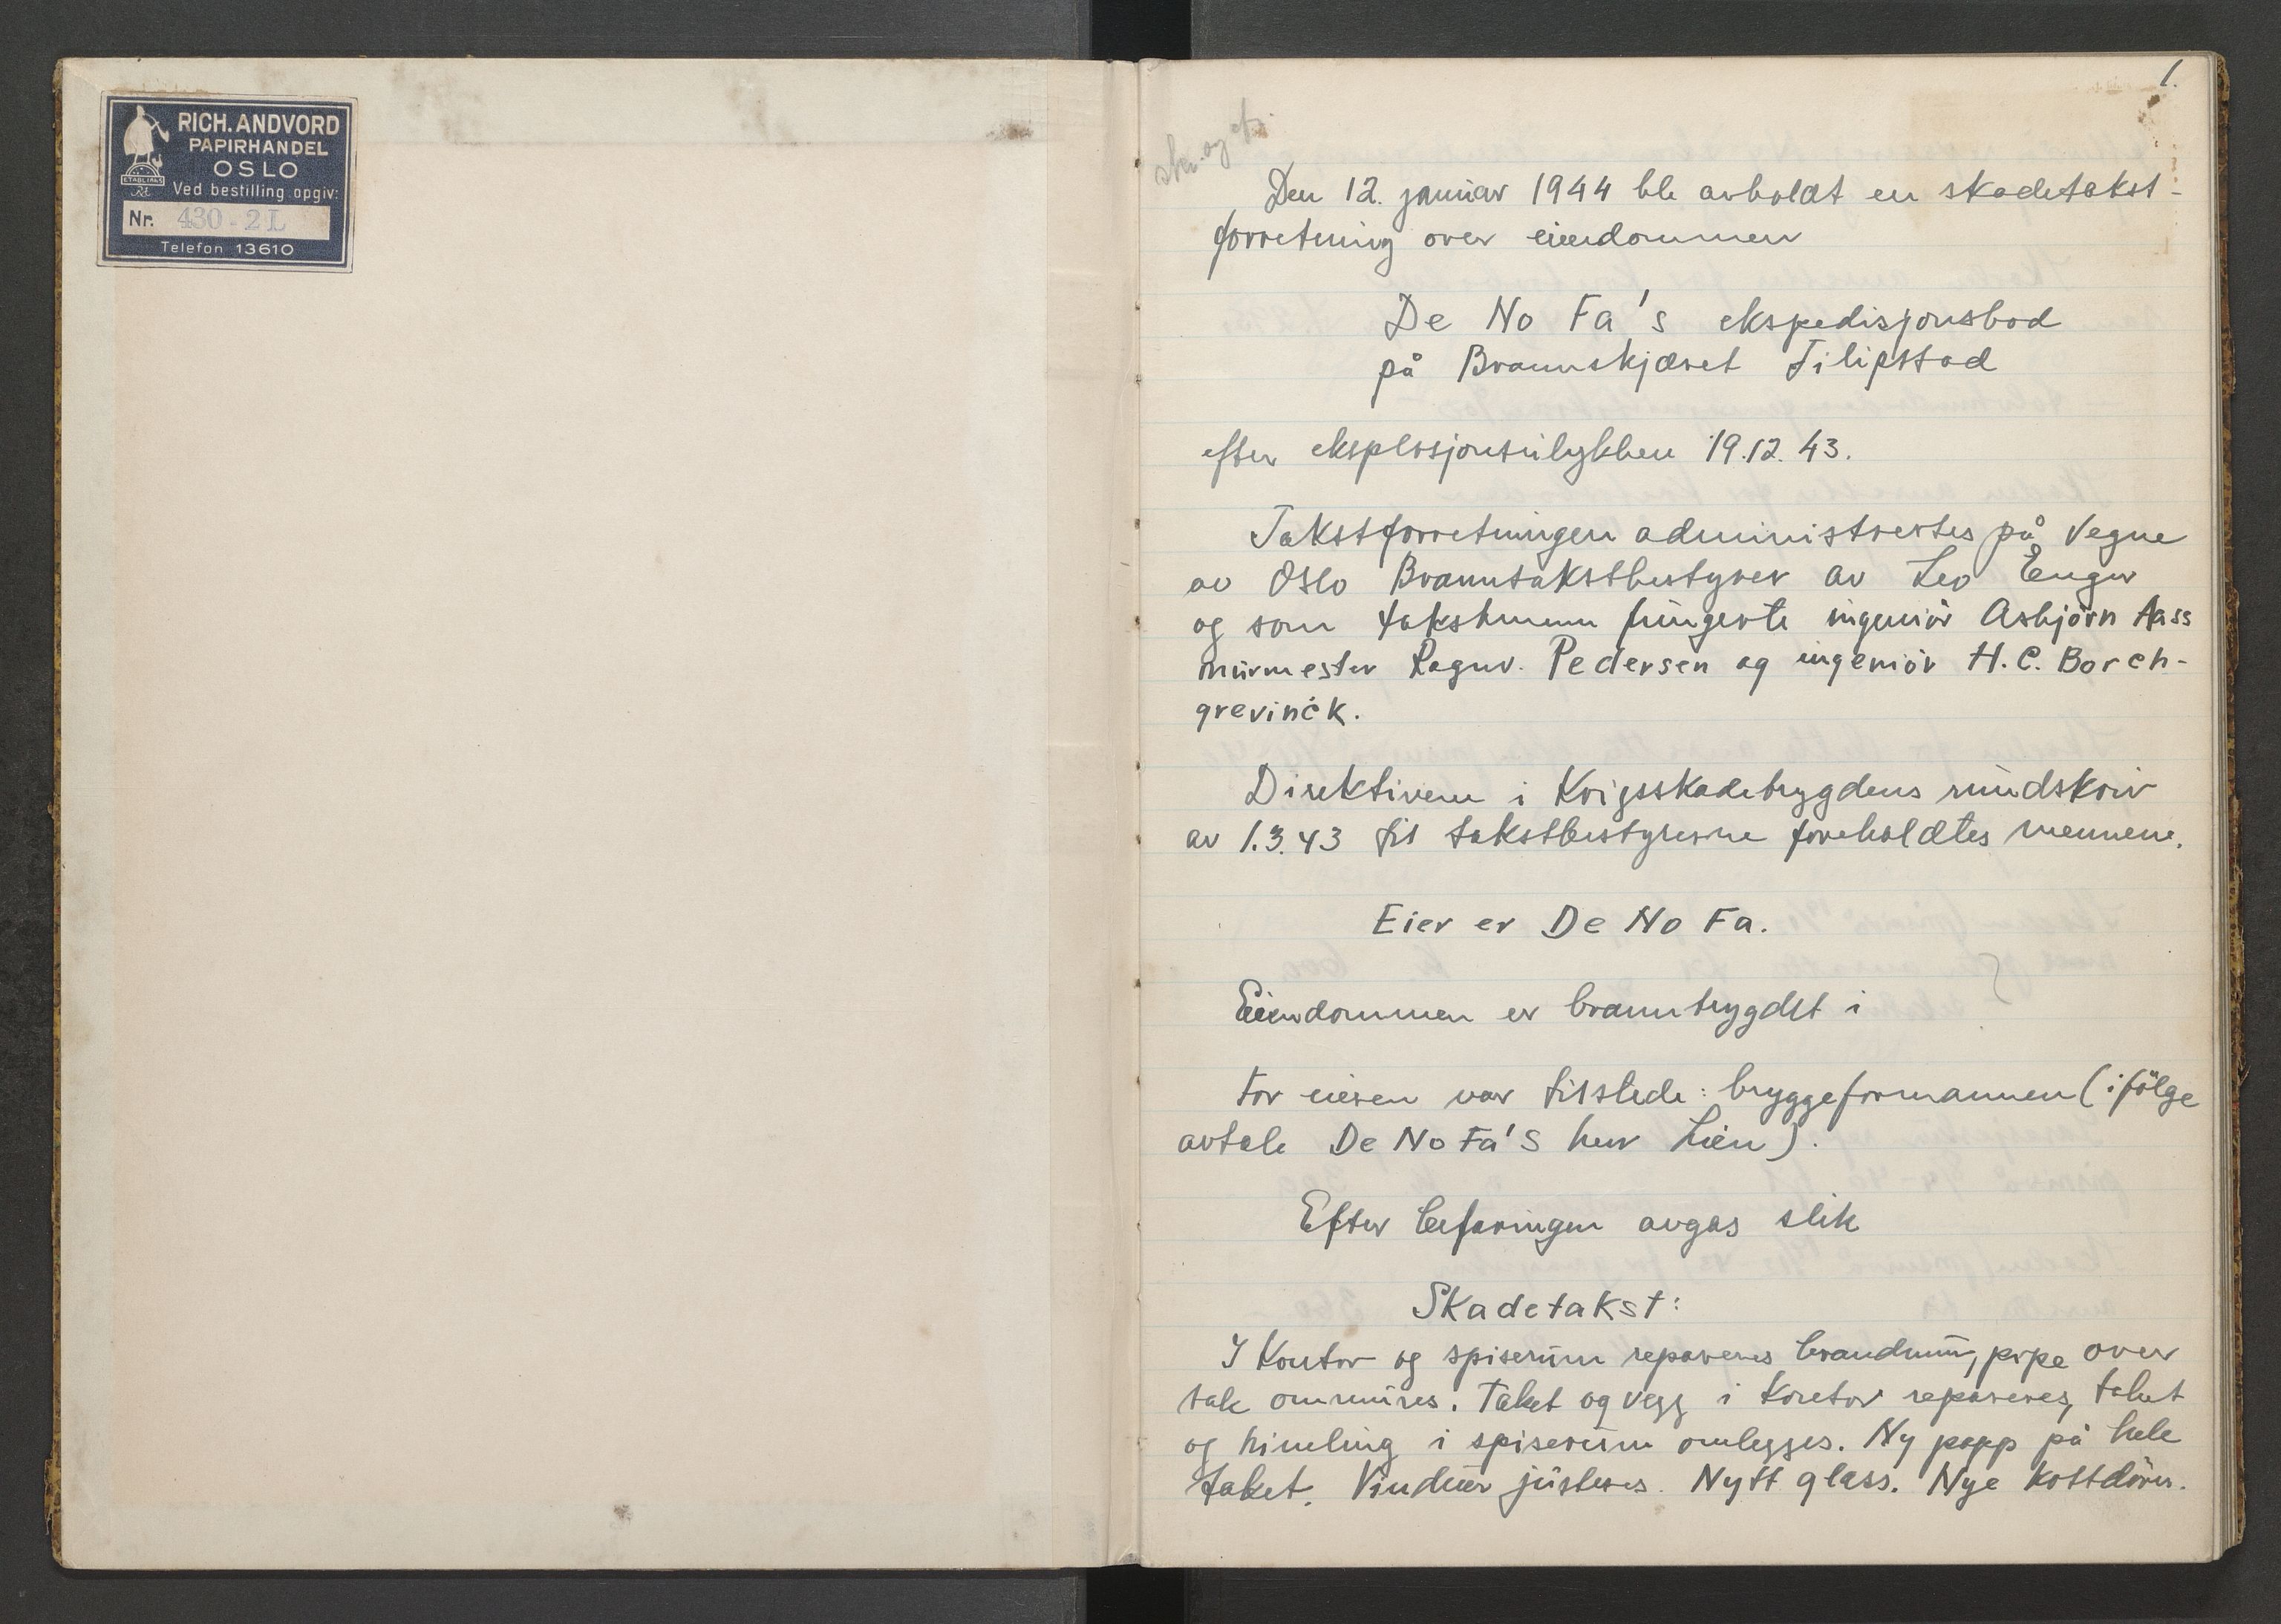 RICH. ANDVORD
PAPIRHANDEL
OSLO
ETABL. 1865
RA
Ved bestilling opgiv:
Nr. 430-2L
Telefon 13610
1.
skr. og
Den 12. januar 1944 ble avholdt en skadetakst-
forretning over eiendommen
De No Fa's ekspedisjonsbod
på Brannskjæret Filipstad
efter eksplosjonsulykken 19.12.43.
Takstforretningen administrertes på vegne
av Oslo Branntakstbestyrer av Leo Enger
og som takstmenn fungerte ingeniör Asbjörn Aass
murmester Ragnv. Pedersen og ingeniör H. C. Borch-
grevinck.
Direktivene i Krigsskadetrygdens rundskriv
av 1.3.43 til takstbestyrerne foreholdtes mennene.
Eier er De No Fa.
Eiendommen er branntrygdet i ?
For eieren var tilstede: bryggeformannen (ifölge
avtale De No Fa's herr Lien).
Efter befaringen avgas slik
Skadetakst:
I Kontor og spiserum repareres brandmur, pipe over
tak ommures. Taket og vegg i Kontor repareres, taket
og himling i spiserum omlegges. Ny papp på hele
taket. Vinduer justeres. Nytt glass. Nye kottdörer.